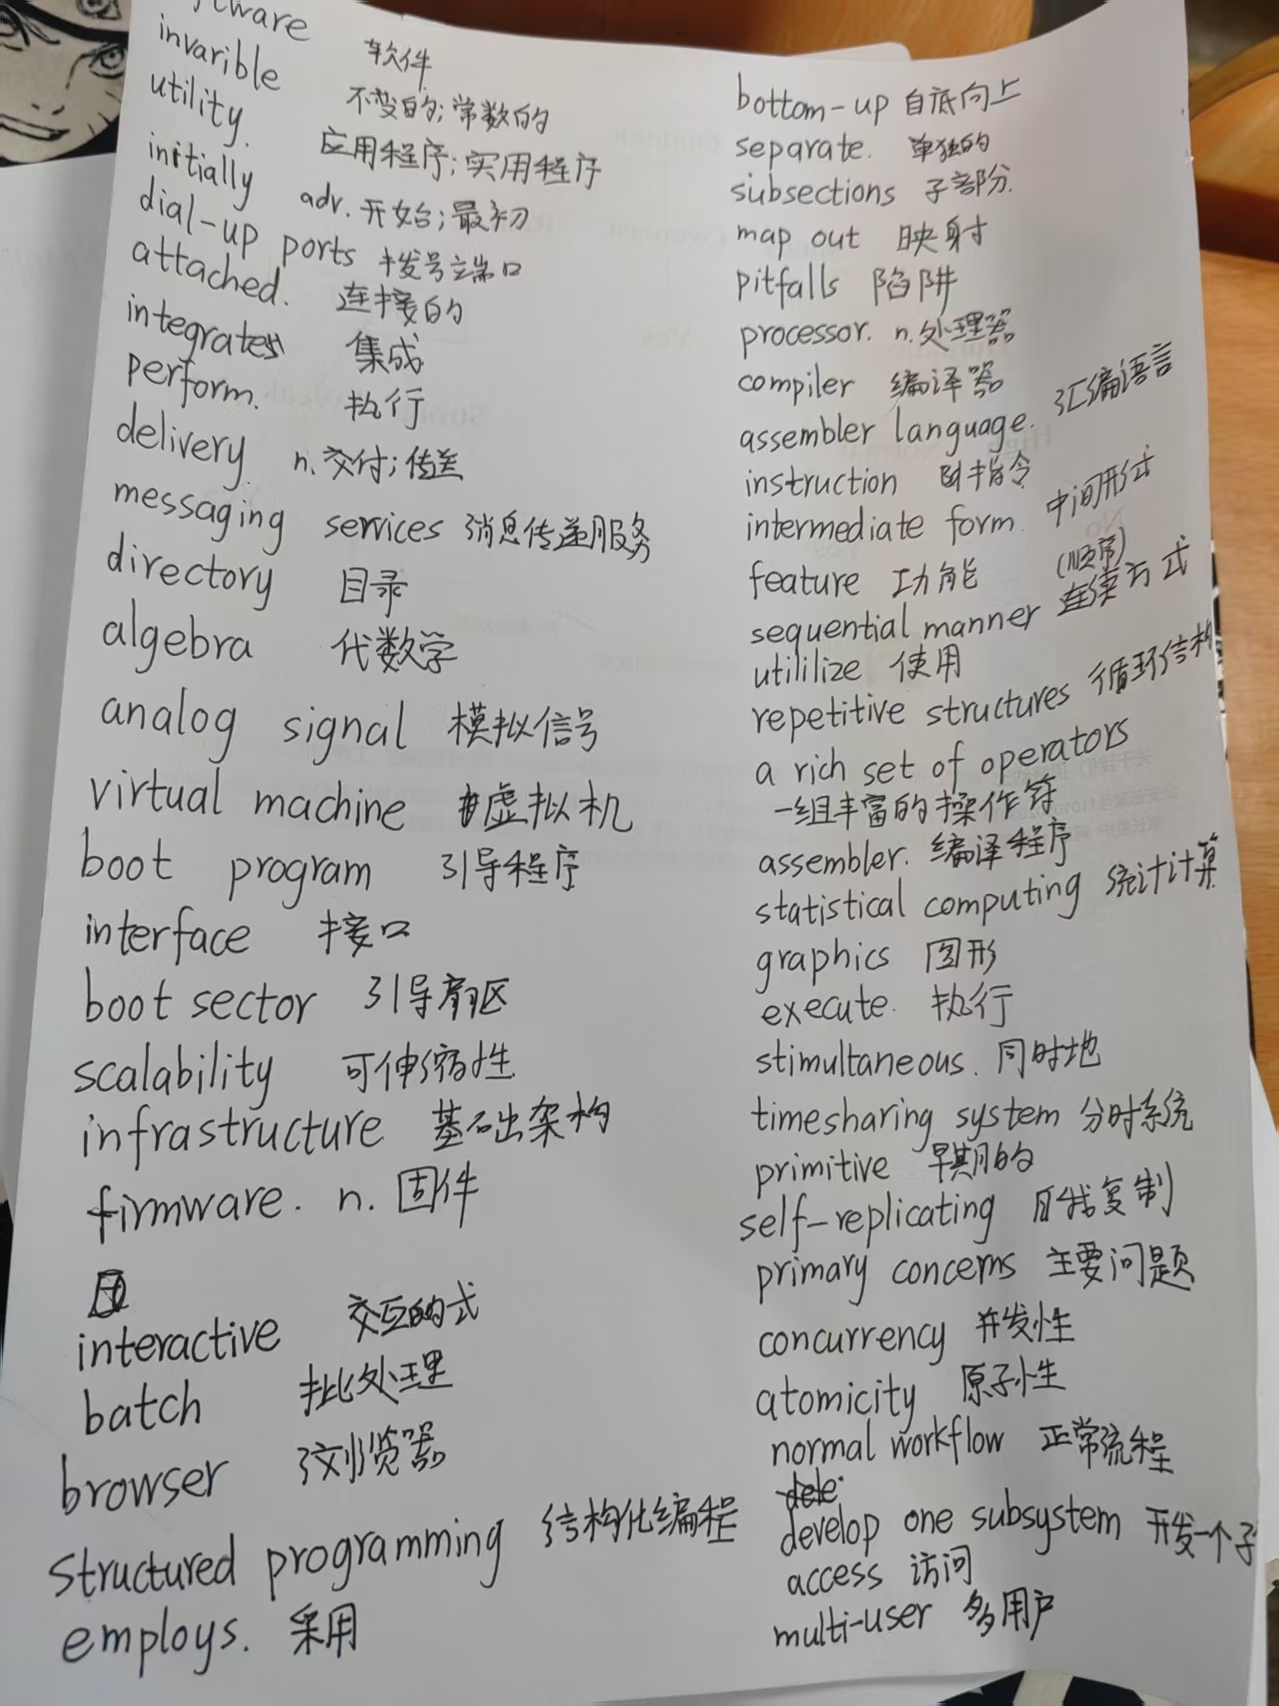 software 软件
invarible 不变的;常数的
utility. 应用程序;实用程序
initially adv. 开始;最初
dial-up ports 拨号端口
attached. 连接的
integrates 集成
perform. 执行
delivery. n.交付;传送
messaging services 消息传递服务
directory 目录
algebra 代数学
analog signal 模拟信号
virtual machine 虚拟机
boot program 引导程序
interface 接口
boot sector 引导扇区
scalability 可伸缩性
infrastructure 基础架构
firmware. n. 固件
interactive 交互式
batch 批处理
browser 浏览器
structured programming 结构化编程
employs. 采用
bottom-up 自底向上
separate. 单独的
subsections 子部份.
map out 映射
pitfalls 陷阱
processor. n.处理器
compiler 编译器
assembler language. 汇编语言
instruction 指令
intermediate form. 中间形式
feature 功能
sequential manner 连续方式
(顺序)
utililize 使用
repetitive structures 循环结构
a rich set of operators
一组丰富的操作符
assembler. 编译程序
statistical computing 统计计算
graphics 图形
execute. 执行
stimultaneous. 同时地
timesharing system 分时系统
primitive 早期的
self-replicating 自我复制
primary concerns 主要问题
concurrency 并发性
atomicity 原子性
normal workflow 正常流程
dele
develop one subsystem 开发一个子
access 访问
multi-user 多用户